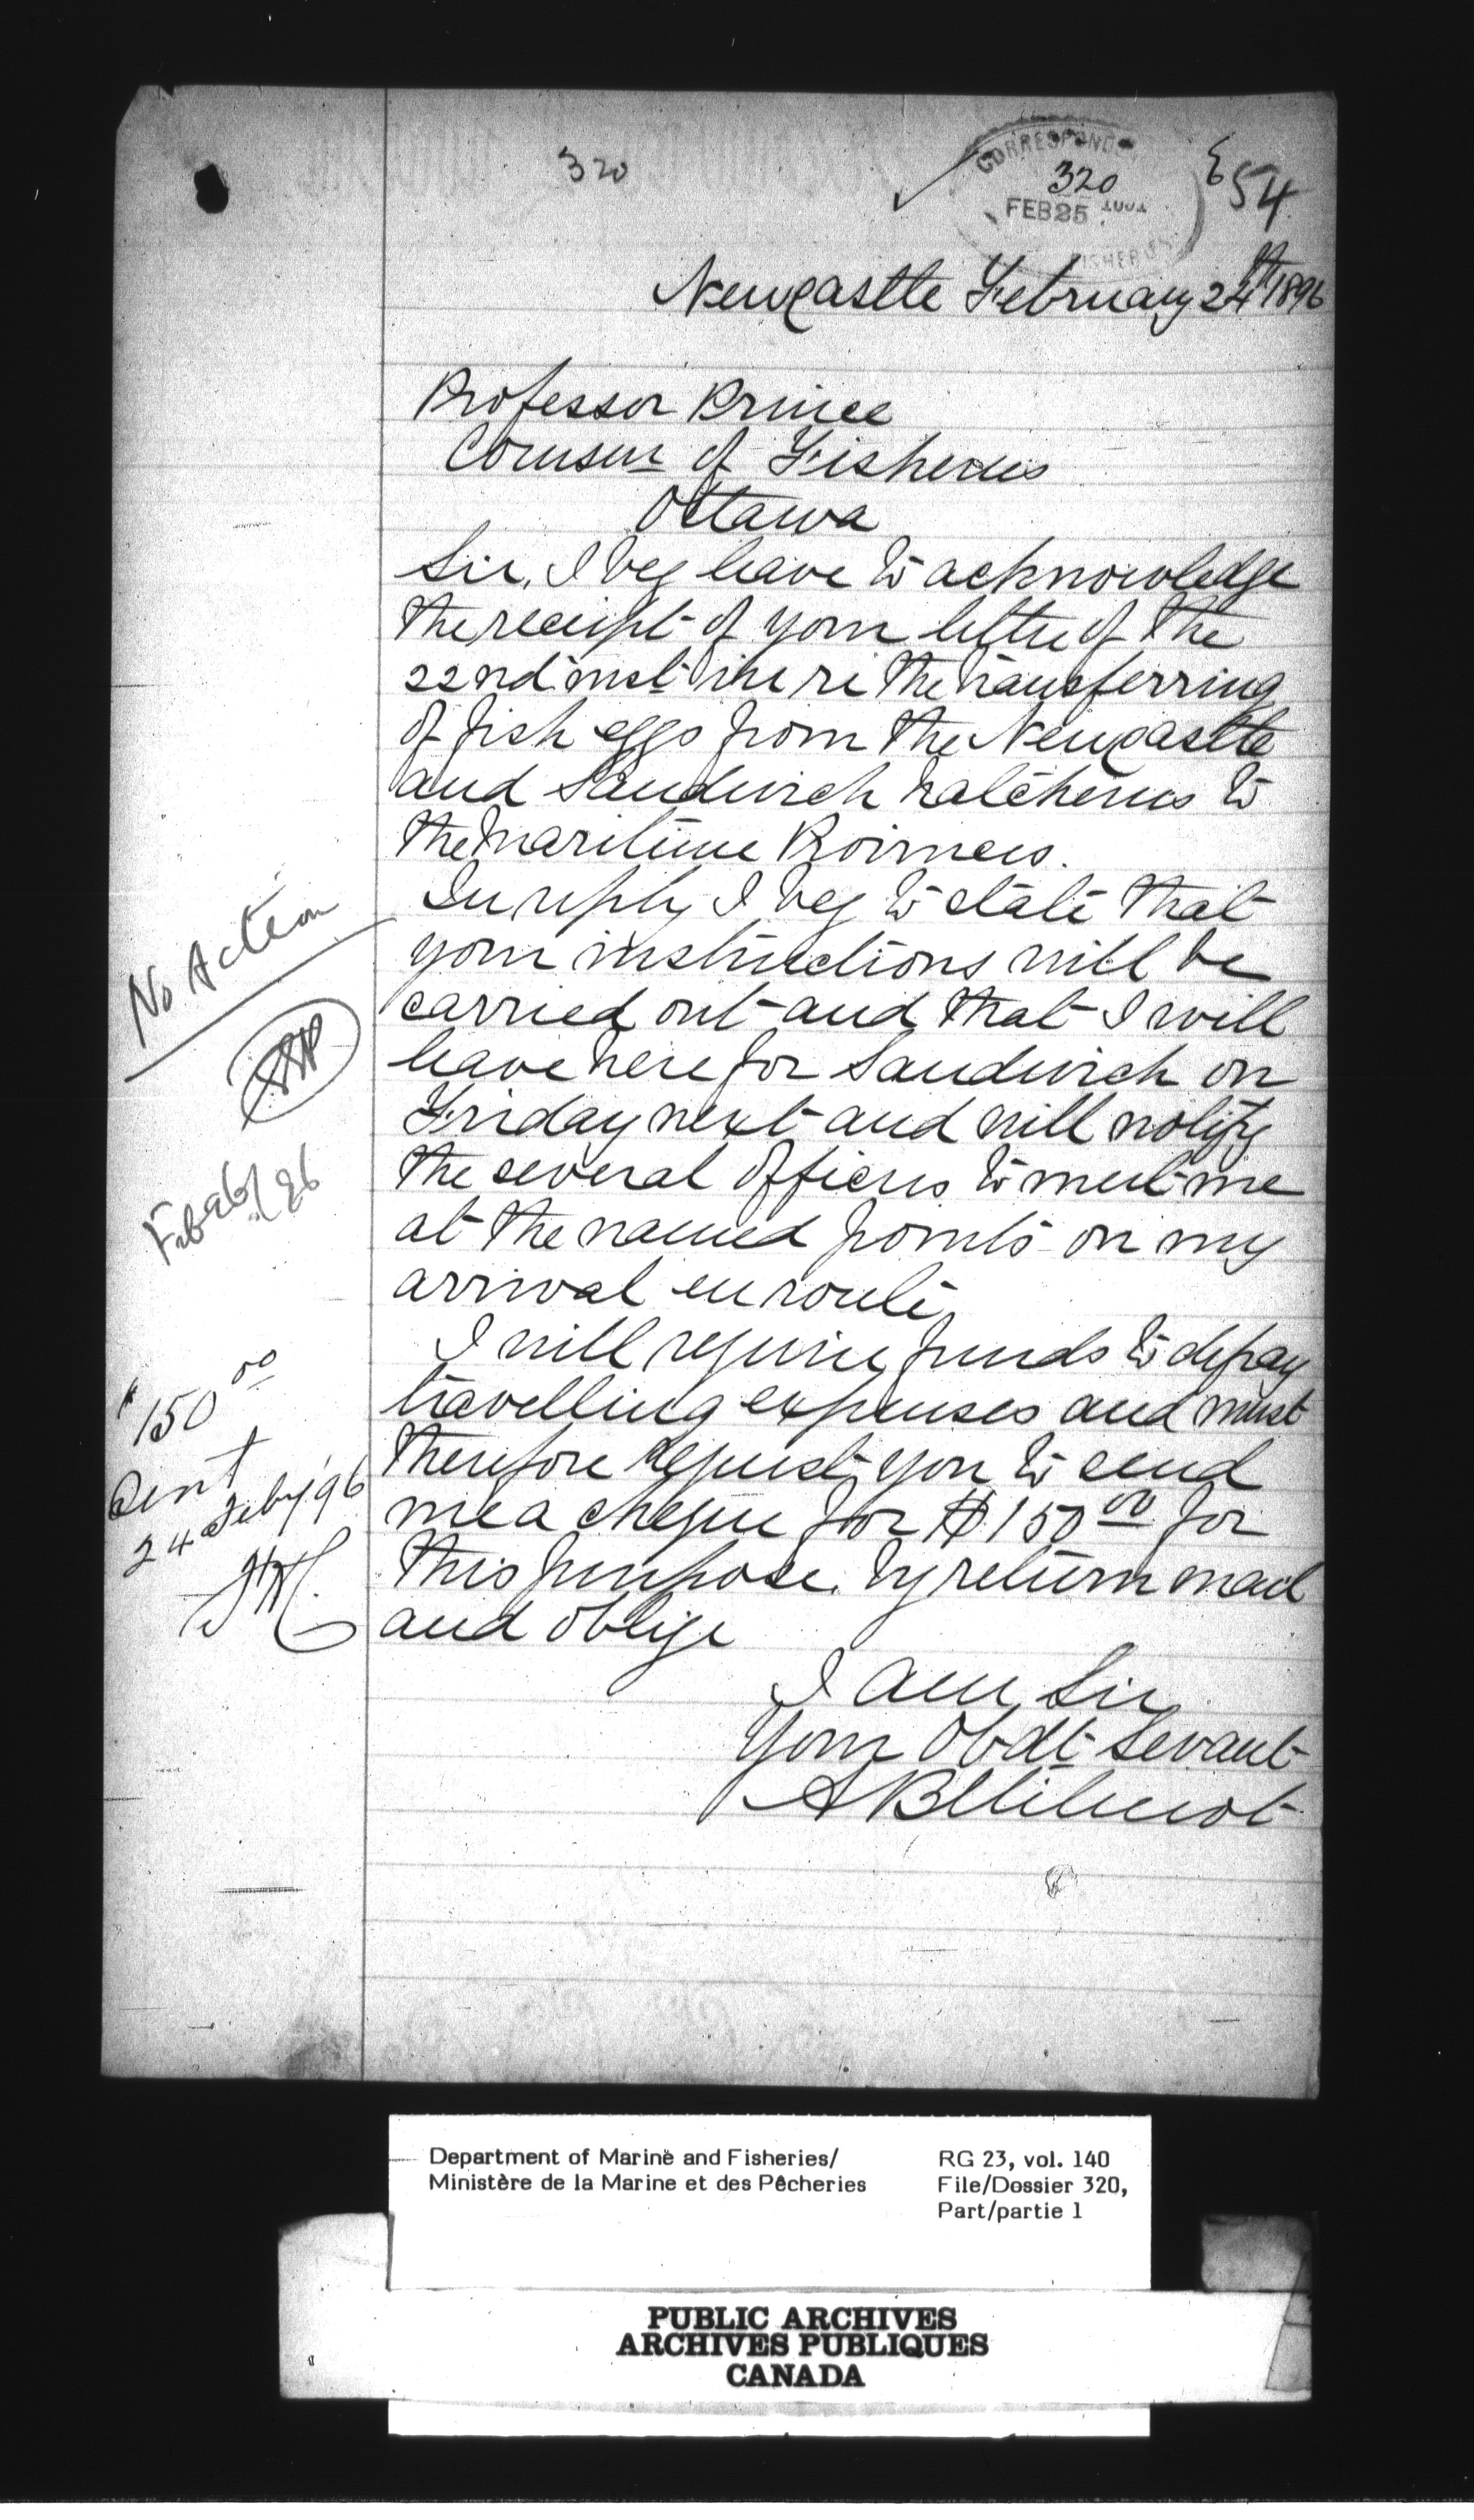 320
CORRESPOND
320
FEB 25
FISHERIES
54
Newcastle February 24th 1896
Professor Prince
Comsur of Fisheries
Ottawa
Sir, I beg leave to acknowledge
the receipt of your letter of the
22nd inst in re the transferring
of fish eggs from the Newcastle
and Sandwich hatcheries to
the Maritime Provinces.
In reply I beg to state that
your instructions will be
carried out and that I will
leave here for Sandwich on
Friday next and will notify
the several officers to meet me
at the named points on my
arrival en route,
I will require funds to defray
travelling expenses and must
therefore request you to send
me a cheque for $150 00 for
this purpose by return mail
and oblige
I am Sir
Your Obdt Servant
A B Wilmot
No Action
Feb 26/96
$150 00
Sent
24 Feby '96
Department of Marine and Fisheries/
Ministère de la Marine et des Pêcheries
RG 23, vol. 140
File/Dossier 320,
Part/partie 1
PUBLIC ARCHIVES
ARCHIVES PUBLIQUES
CANADA